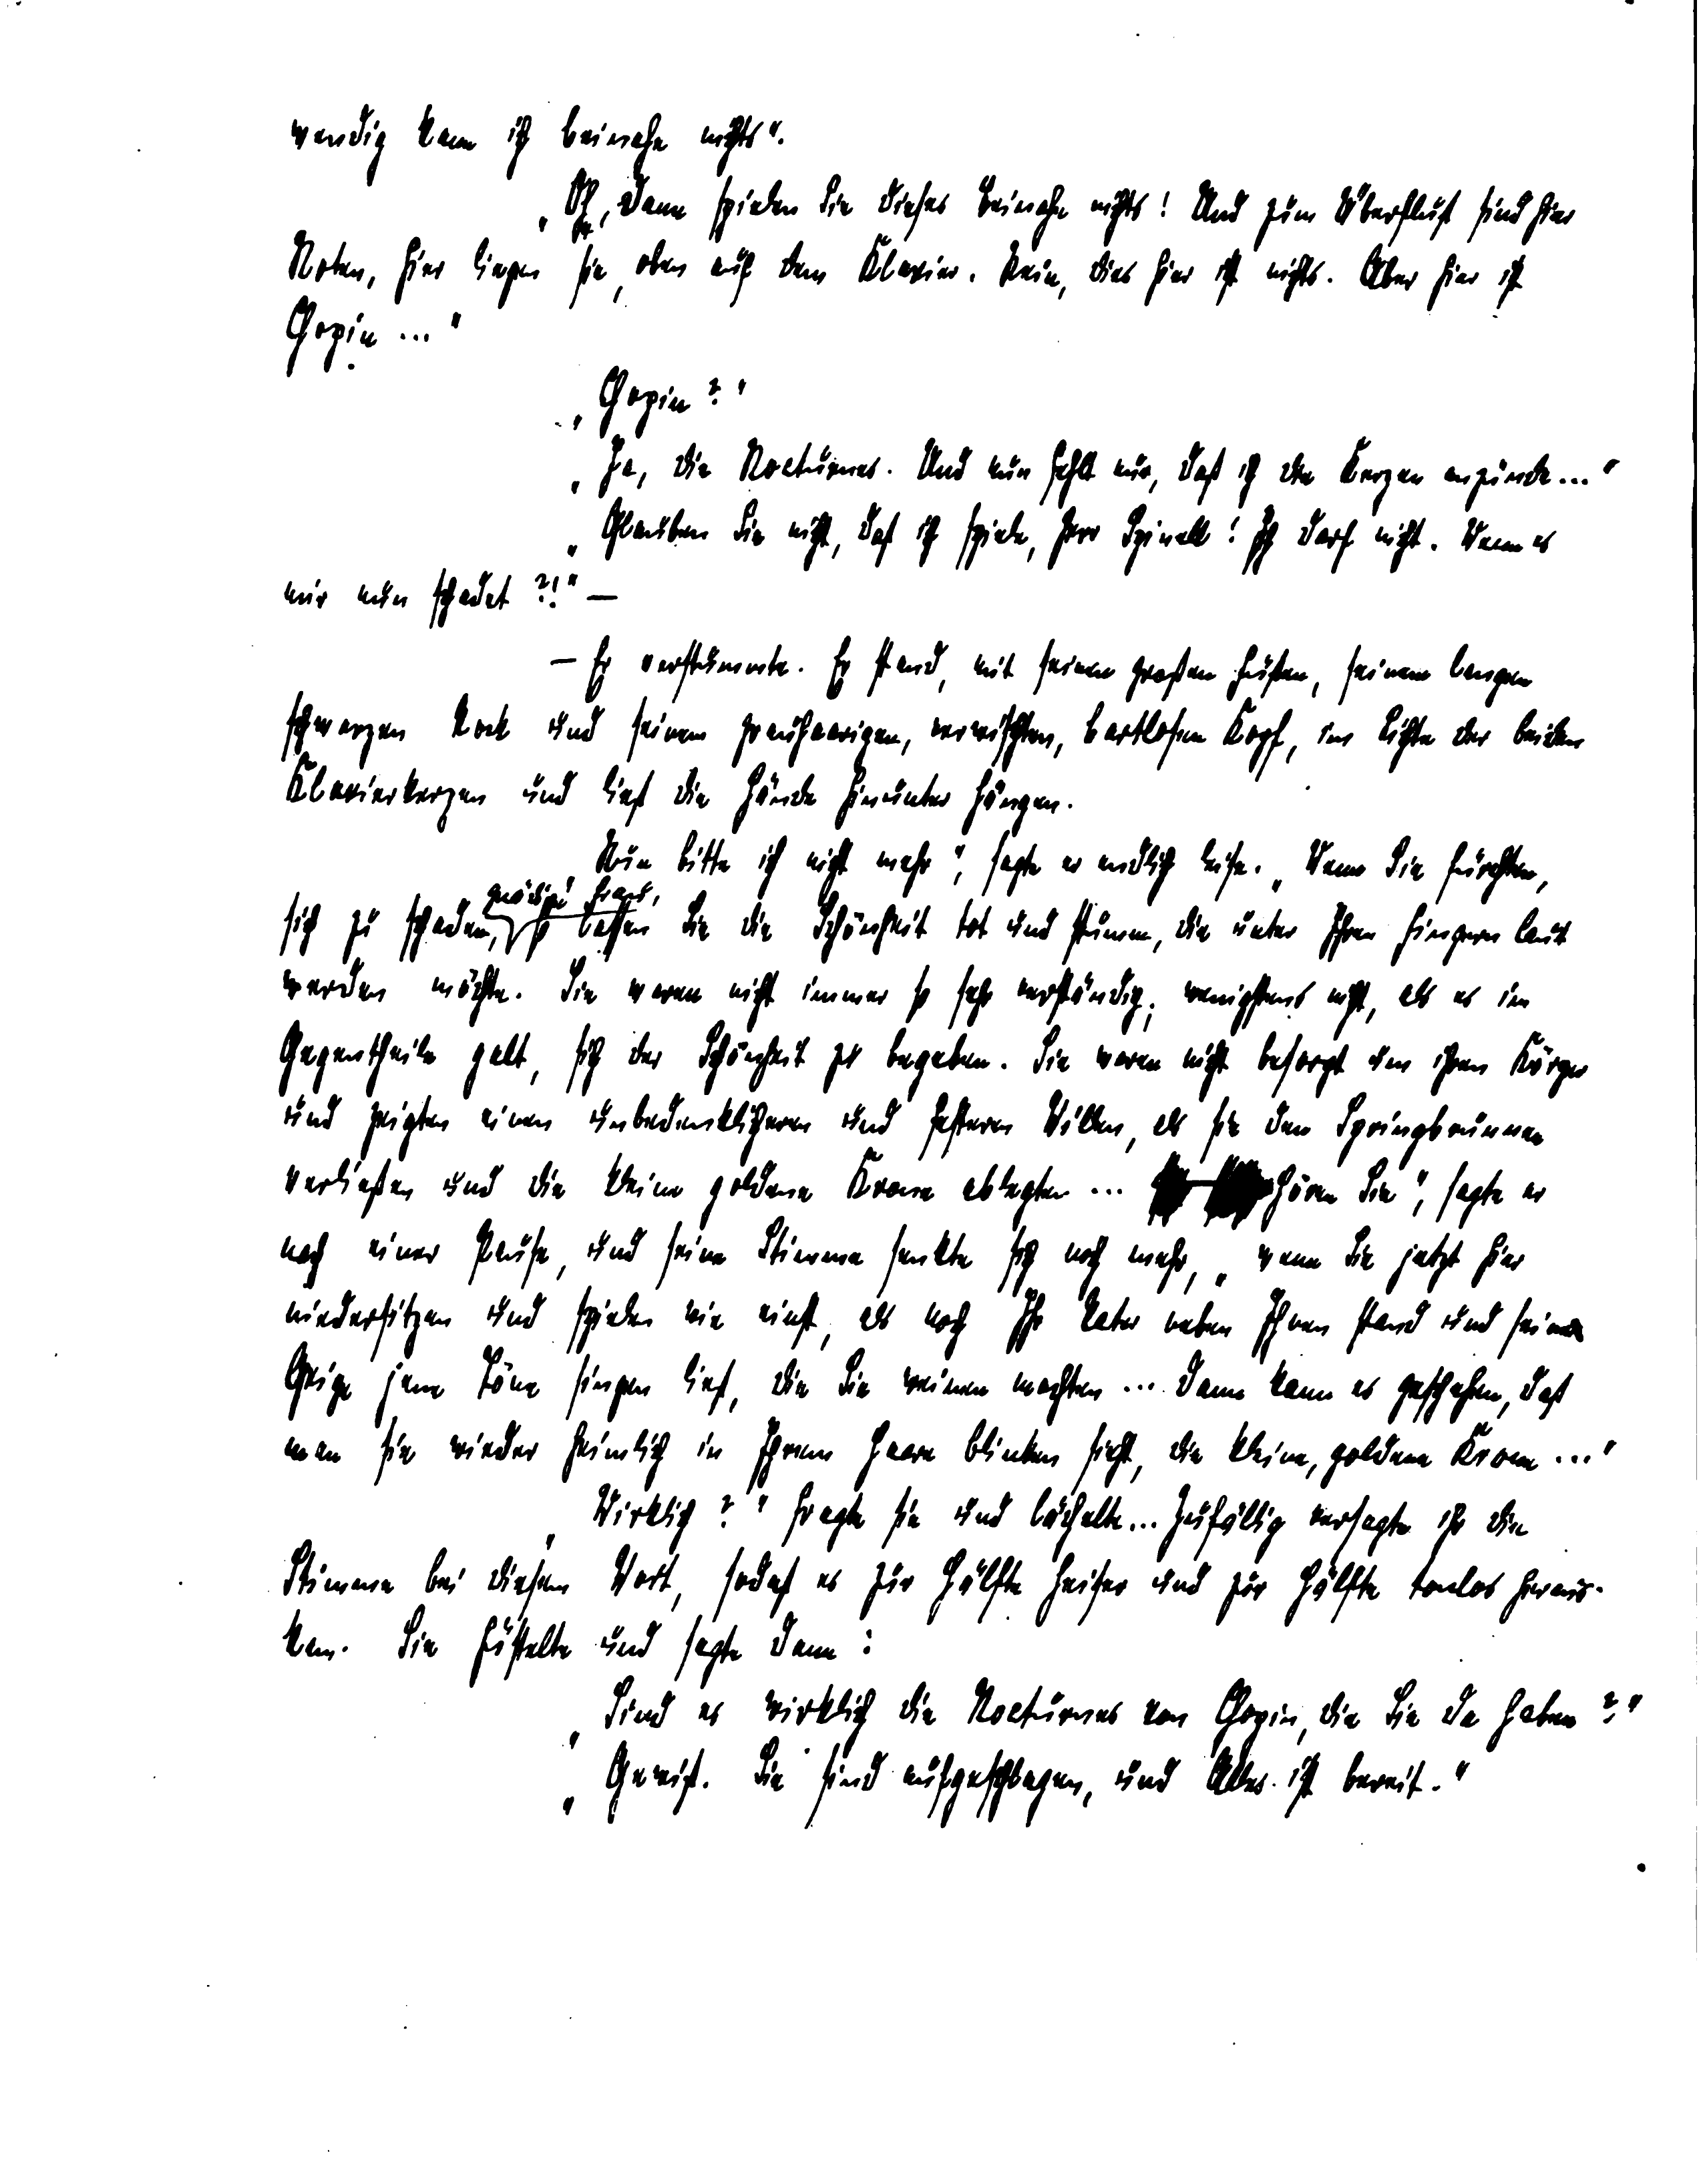 wendig kann ich beinahe nichts“.
„Oh, dann spielen Sie dieses beinahe nichts! Und zum Überfluß sind hier
Noten, hier liegen sie, oben auf dem Klavier. Nein, dies hier ist nichts. Aber hier ist
Chopin ...“
„Chopin?“
„Ja, die Nocturnes. Und nun fehlt nur, daß ich die Kerzen anzünde...“
„Glauben Sie nicht, daß ich spiele, Herr Spinell! Ich darf nicht. Wenn es
mir nun schadet?!“ —
— Er verstummte. Er stand, mit seinen großen Füßen, seinem langen
schwarzen Rock und seinem grauhaarigen, verwischten, bartlosen Kopf, im Lichte der beiden
Klavierkerzen und ließ die Hände hinunter hängen.
„Nun bitte ich nicht mehr“, sagte er endlich leise. „Wenn Sie fürchten,
sich zu schaden, gnädige Frau, so lassen Sie die Schönheit tot und stumm, die unter Ihren Fingern laut
werden möchte. Sie waren nicht immer so sehr verständig; wenigstens nicht, als es im
Gegentheile galt, sich der Schönheit zu begeben. Sie waren nicht besorgt um ihren Körper
und zeigten einen unbedenklicheren und festeren Willen, als sie den Springbrunnen
verließen und die kleine goldene Krone ablegten ... Hören Sie“, sagte er
nach einer Pause, und seine Stimme senkte sich noch mehr, „wenn Sie jetzt hier
niedersitzen und spielen wie einst, als noch Ihr Vater neben Ihnen stand und seine
Geige jene Töne singen ließ, die Sie weinen machten ... dann kann es geschehen, daß
man sie wieder heimlich in Ihrem Haare blinken sieht, die kleine, goldene Krone ...“
„Wirklich?“ fragte sie und lächelte... Zufällig versagte ihr die
Stimme bei diesem Wort, sodaß es zur Hälfte heiser und zur Hälfte tonlos heraus-
kam. Sie hüstelte und sagte dann:
„Sind es wirklich die Nocturnes von Chopin, die Sie da haben?“
„Gewiß. Sie sind aufgeschlagen, und Alles ist bereit.“